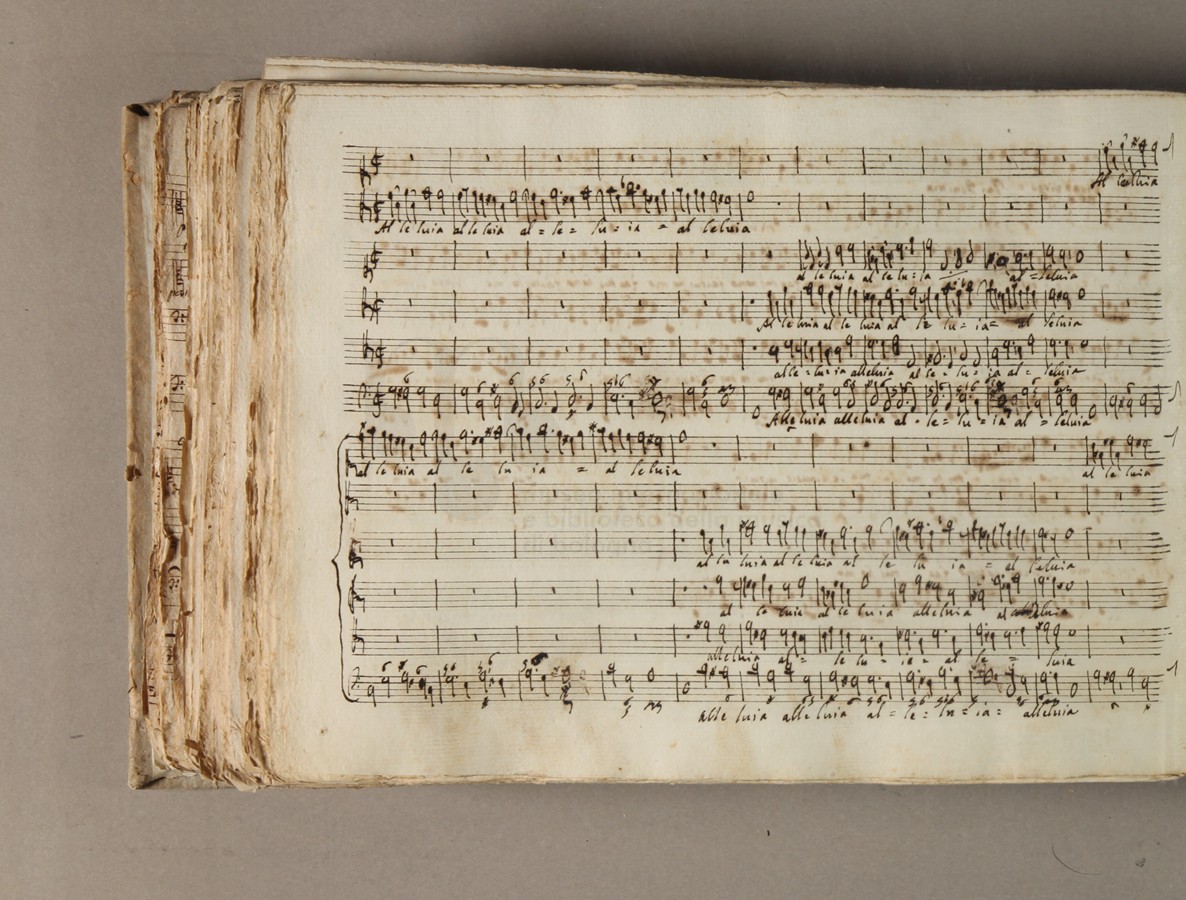 Al leluia
Al le luia al le luia al = le = lu = ia = al leluia
al le luia al le lu = ia al = leluia
Al le luia al le luia al le lu = ia = al leluia
alle = lu = ia alleluia al le = lu = ia al = leluia
Alleluia alleluia al = le = lu = ia al = leluia
al le luia al le lu ia = al leluia al le luia
al le luia al le luia al le lu ia = al leluia
al le luia al le luia alleluia al
alleluia al = le lu = ia = al le = luia
alle luia alle luia al = le = lu = ia = alleluia